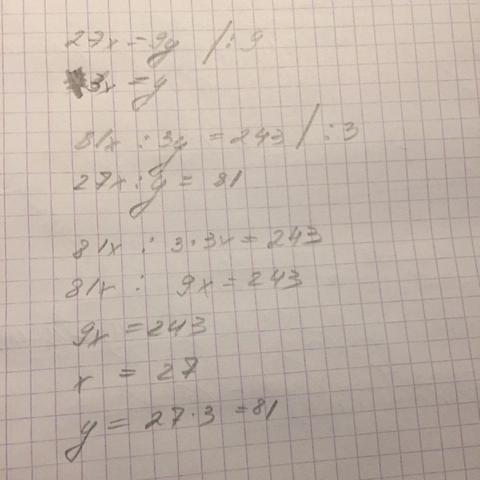 27x = 9y /:9
3x = y
81x : 3y = 243 /:3
27x : y = 81
81x : 3·3x = 243
81x : 9x = 243
9x = 243
x = 27
y = 27·3 = 81